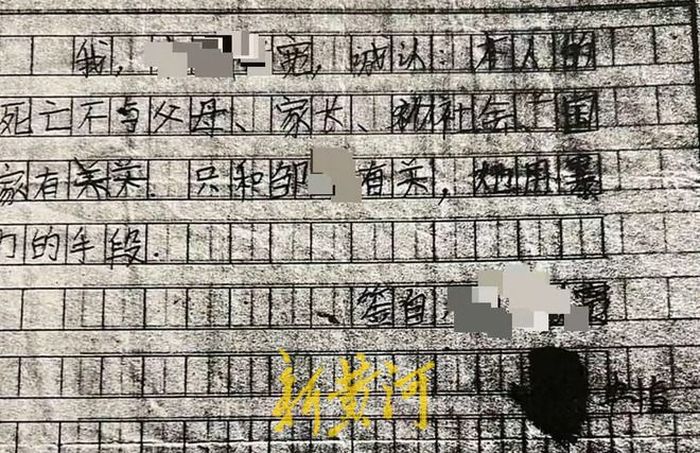 我, 宽, 诚认:本人的
死亡不与父母、家长、和社会、国
家有关 只和邹 有关, 她用暴
力的手段.
签自
新黄河